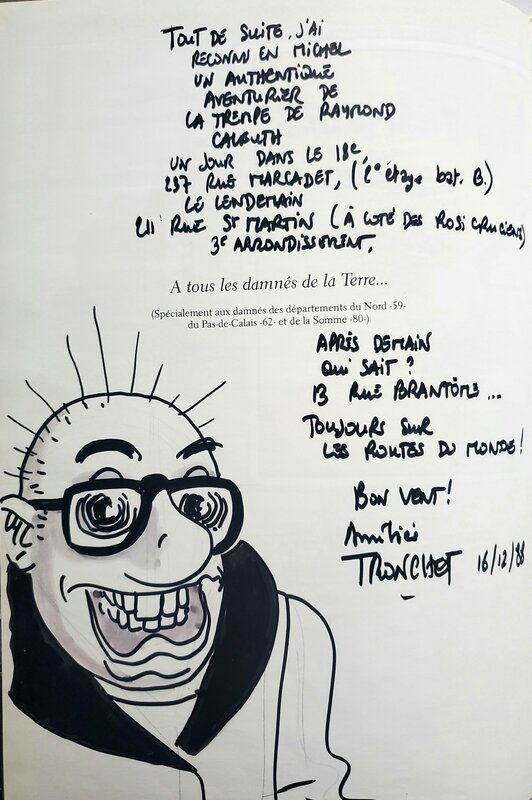 TOUT DE SUITE, J'AI
RECONNU EN MICHEL
UN AUTHENTIQUE
AVENTURIER DE
LA TREMPE DE RAYMOND
CALBUTH
UN JOUR DANS LE 18e,
237 RUE MARCADET, (2e étage bat. B.)
LE LENDEMAIN
211 RUE ST MARTIN (À COTÉ DES ROSI CRUCIENS)
3e ARRONDISSEMENT.
A tous les damnés de la Terre...
(Spécialement aux damnés des départements du Nord -59-
du Pas-de-Calais -62- et de la Somme -80-)
APRÈS DEMAIN
QUI SAIT ?
13 RUE BRANTÔME ...
TOUJOURS SUR
LES ROUTES DU MONDE !
BON VENT !
Amitiés
TRONCHET 16/12/88